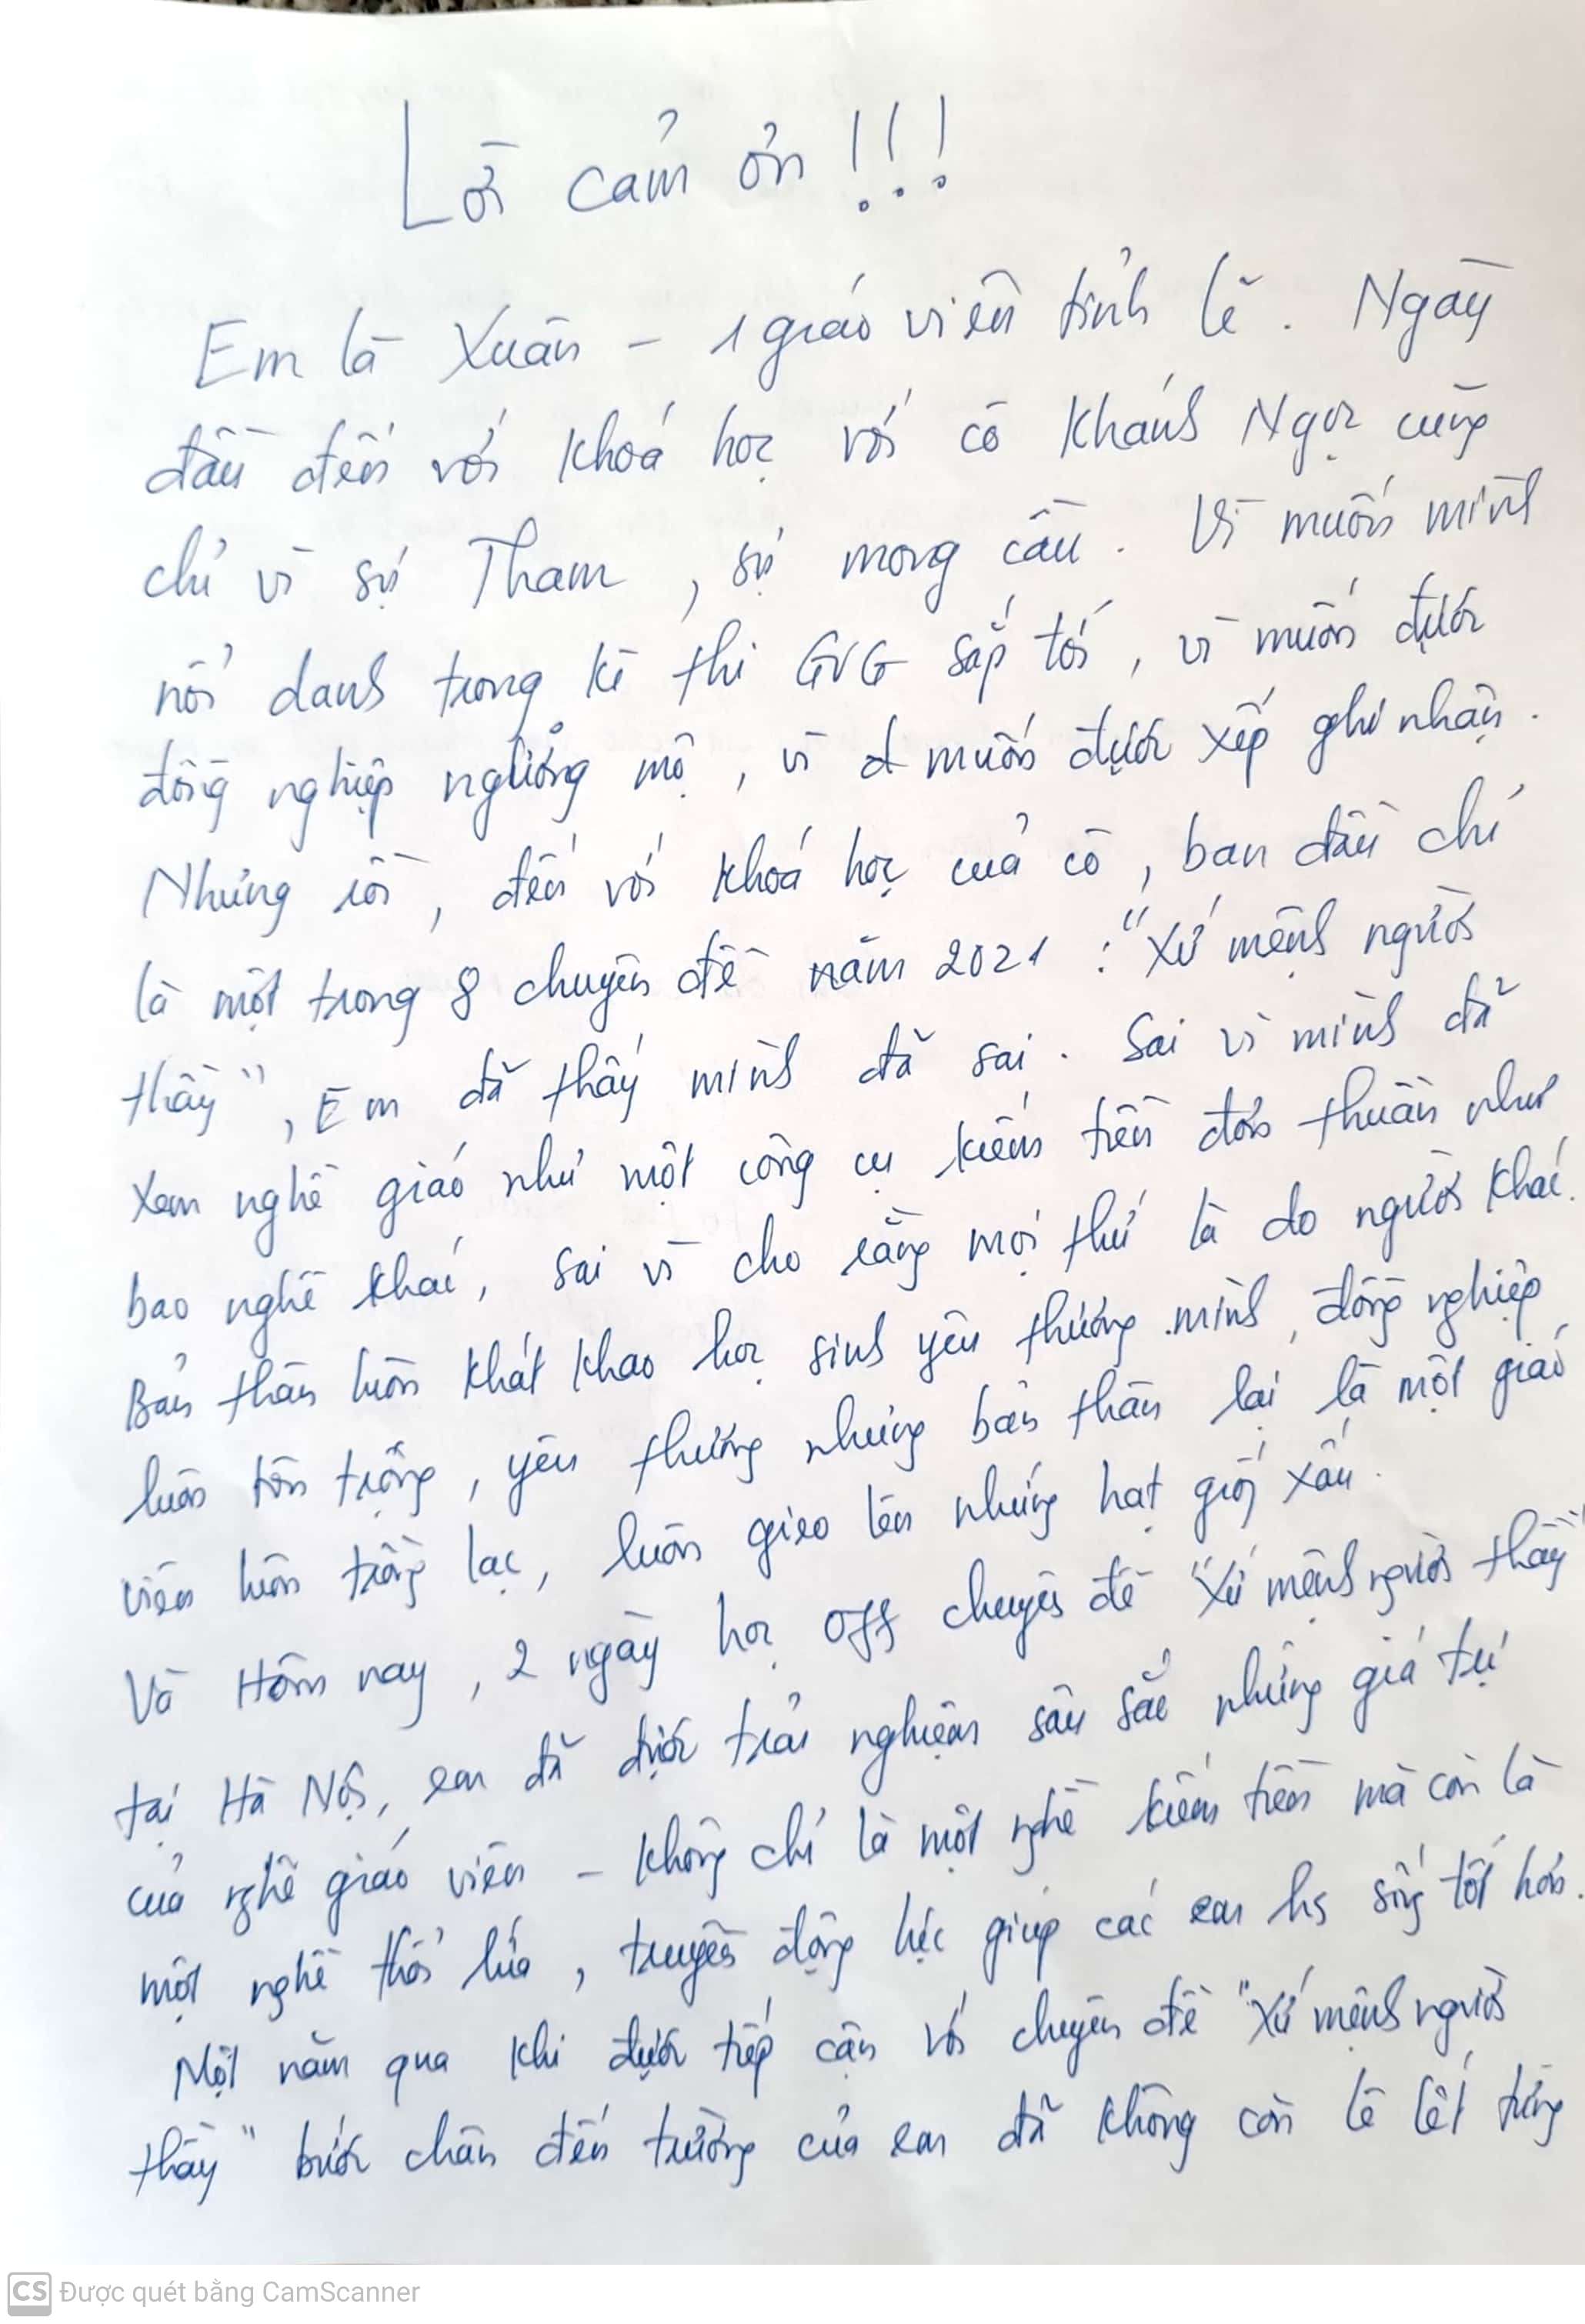 Lời cảm ơn !!!
Em là Xuân - 1 giáo viên tỉnh lẻ. Ngày
đầu đến với khoá học với cô Khánh Ngọc cũng
chỉ vì sự Tham, sự mong cầu. Vì muốn mình
nổi danh trong kì thi GVG sắp tới, vì muốn được
đồng nghiệp ngưỡng mộ, vì muốn được xếp ghi nhận.
Nhưng rồi, đến với khoá học của cô, ban đầu chỉ
là một trong 8 chuyên đề năm 2021 : "Xứ mệnh người
thầy", Em đã thấy mình đã sai. Sai vì mình đã
xem nghề giáo như một công cụ kiếm tiền đơn thuần như
bao nghề khác, sai vì cho rằng mọi thứ là do người khác.
Bản thân luôn khát khao học sinh yêu thương mình, đồng nghiệp
luôn tôn trọng, yêu thương nhưng bản thân lại là một giáo
viên luôn trồng lạc, luôn gieo lên những hạt giống xấu.
Và Hôm nay, 2 ngày học off chuyên đề "Xứ mệnh người thầy"
tại Hà Nội, em đã được trải nghiệm sâu sắc những giá trị
của nghề giáo viên - không chỉ là một nghề kiếm tiền mà còn là
một nghề thổi lửa, truyền động lực giúp các em hs sống tốt hơn.
Một năm qua khi được tiếp cận với chuyên đề "Xứ mệnh người
thầy" bước chân đến trường của em đã không còn lê lết từng
CS Được quét bằng CamScanner